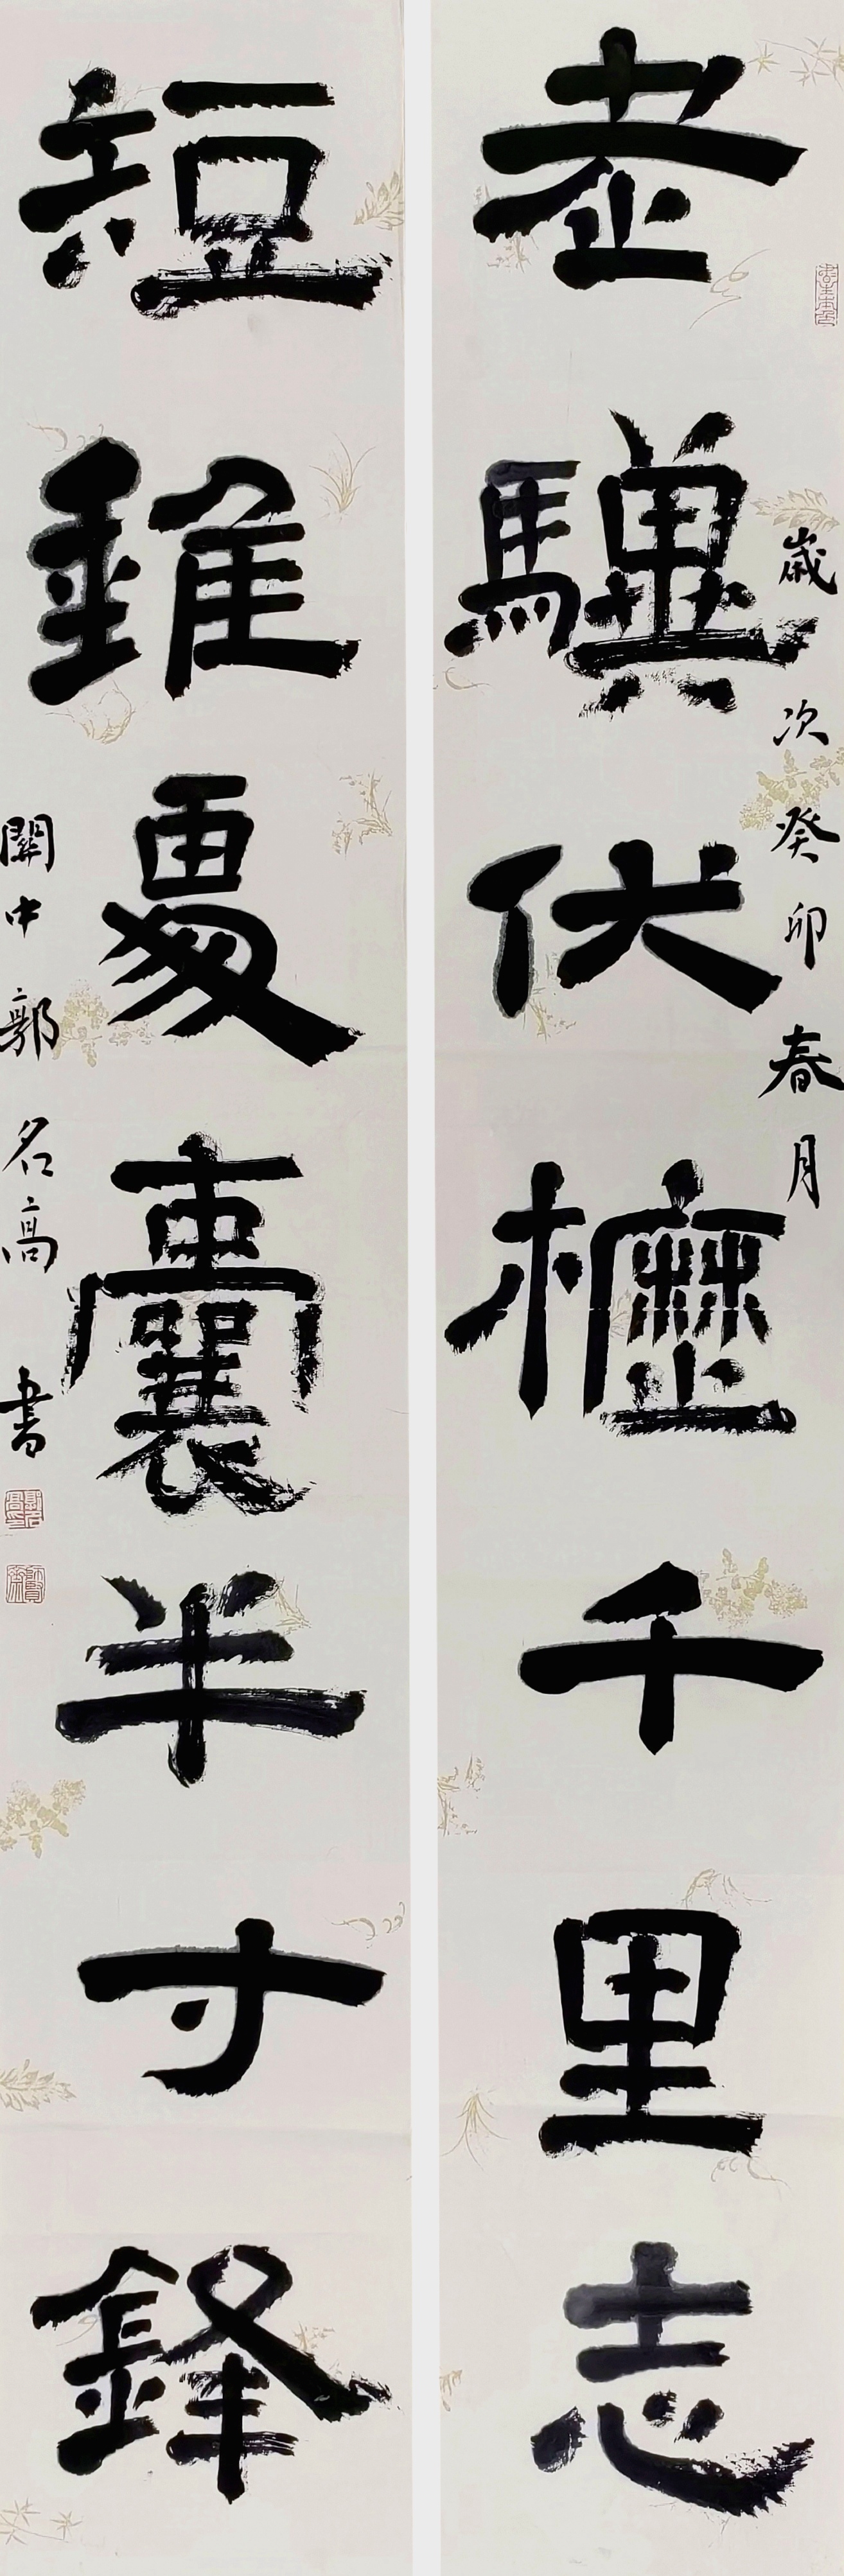 歲次癸卯春月
老驥伏櫪千里志
短錐處囊半寸鋒
關中郭名高書